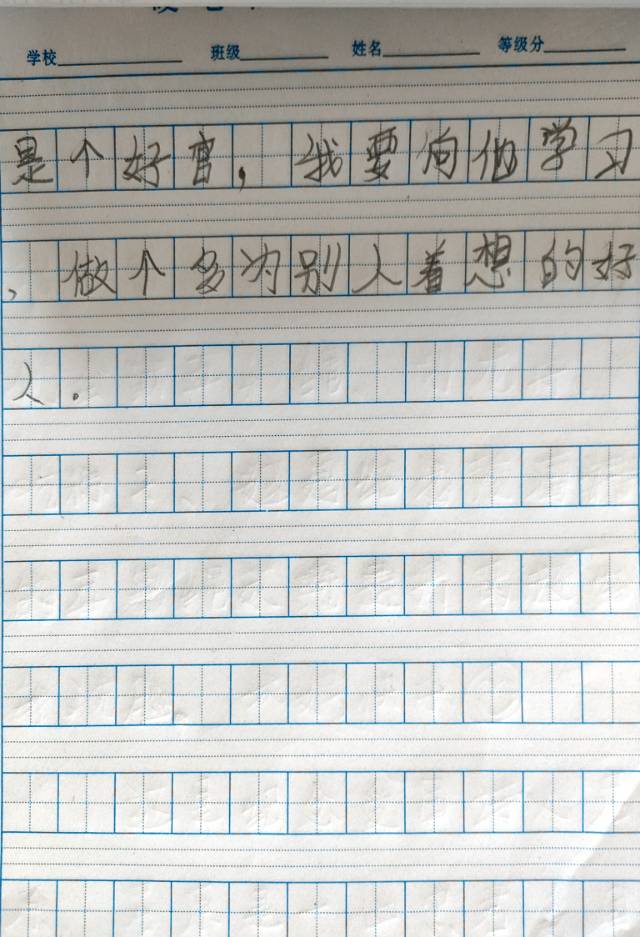 学校 班级 姓名 等级分
是个好官，我要向他学习
，做个多为别人着想的好
人。